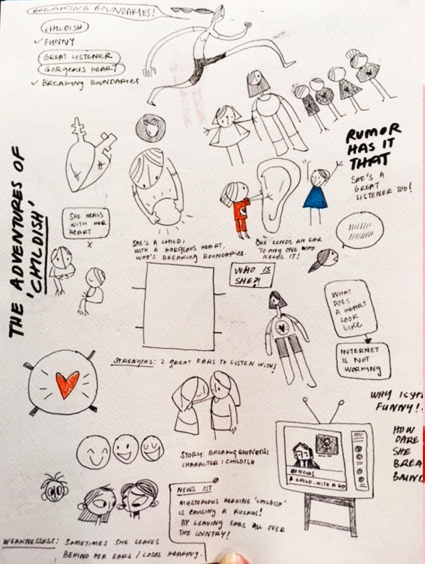 BREAKING BOUNDARIES!
CHILDISH
✓ FUNNY
GREAT LISTENER
GORGEOUS HEART
✓ BREAKING BOUNDARIES
THE ADVENTURES OF
'CHILDISH'
RUMOR
HAS IT
THAT
SHE'S A
GREAT
LISTENER TOO!
SHE HEALS
WITH HER
HEART
X
SHE'S A CHILD,
WITH A GORGEOUS HEART,
WHO'S BREAKING BOUNDARIES.
SHE LENDS AN EAR
TO ANY ONE WHO
NEEDS IT!
WHO IS
SHE?!
WHAT
DOES
A HEART
LOOK
LIKE
INTERNET
IS NOT
WORKING
STRENGTHS: 2 GREAT EARS TO LISTEN WITH!
WHY
FUNNY!
HOW
DARE
SHE
BREA
STORY: BREAKING BOUNDARIES
CHARACTER: CHILDISH
A CHILD, WITH A
NEWS 1ST
MYSTERIOUS HEROINE 'CHILDISH'
IS CAUSING A RUCKUS!
BY LEAVING EARS ALL OVER
THE COUNTRY!
WEAKNESSES: SOMETIMES SHE LEAVES
BEHIND HER EARS / LOSES HEARING.